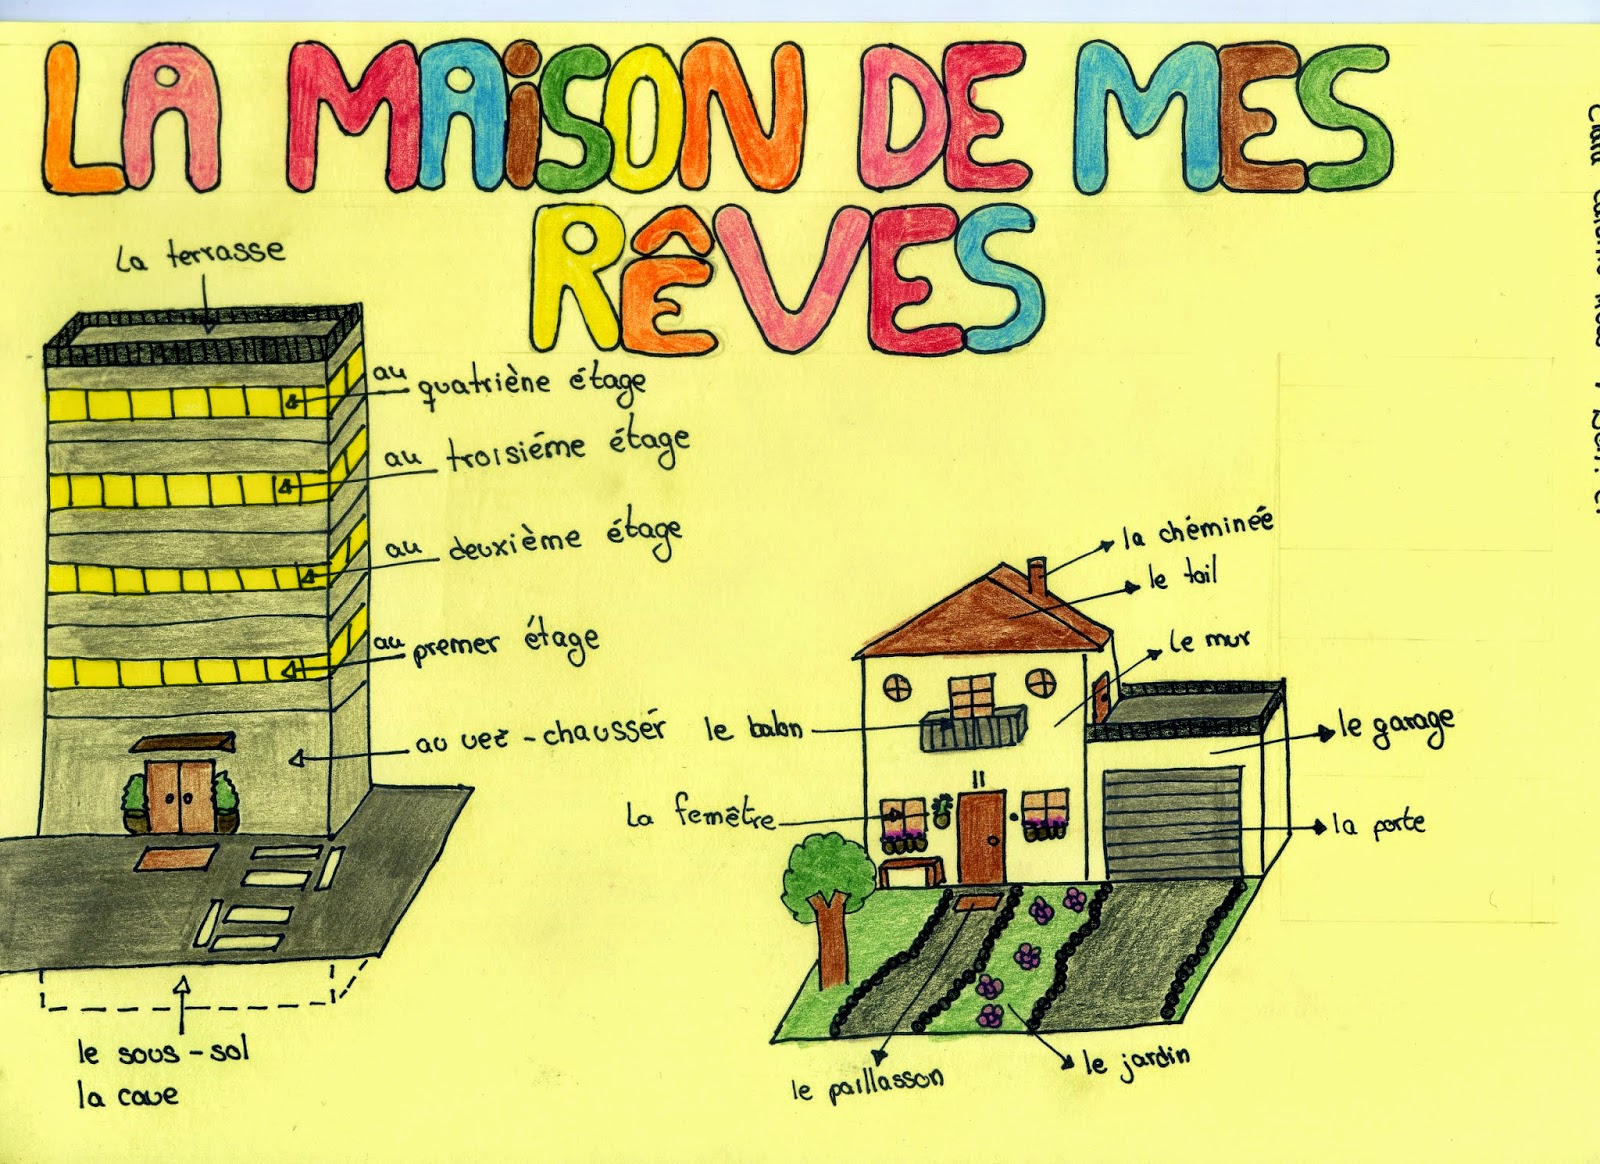 LA MAISON DE MES
RÊVES
La terrasse
au quatriène étage
au troisiéme étage
au deuxième étage
au premer étage
au uez-chaussér
le sous-sol
la cave
la chéminée
le toil
le mur
le balon
le garage
La femêtre
la porte
le paillasson
le jardin